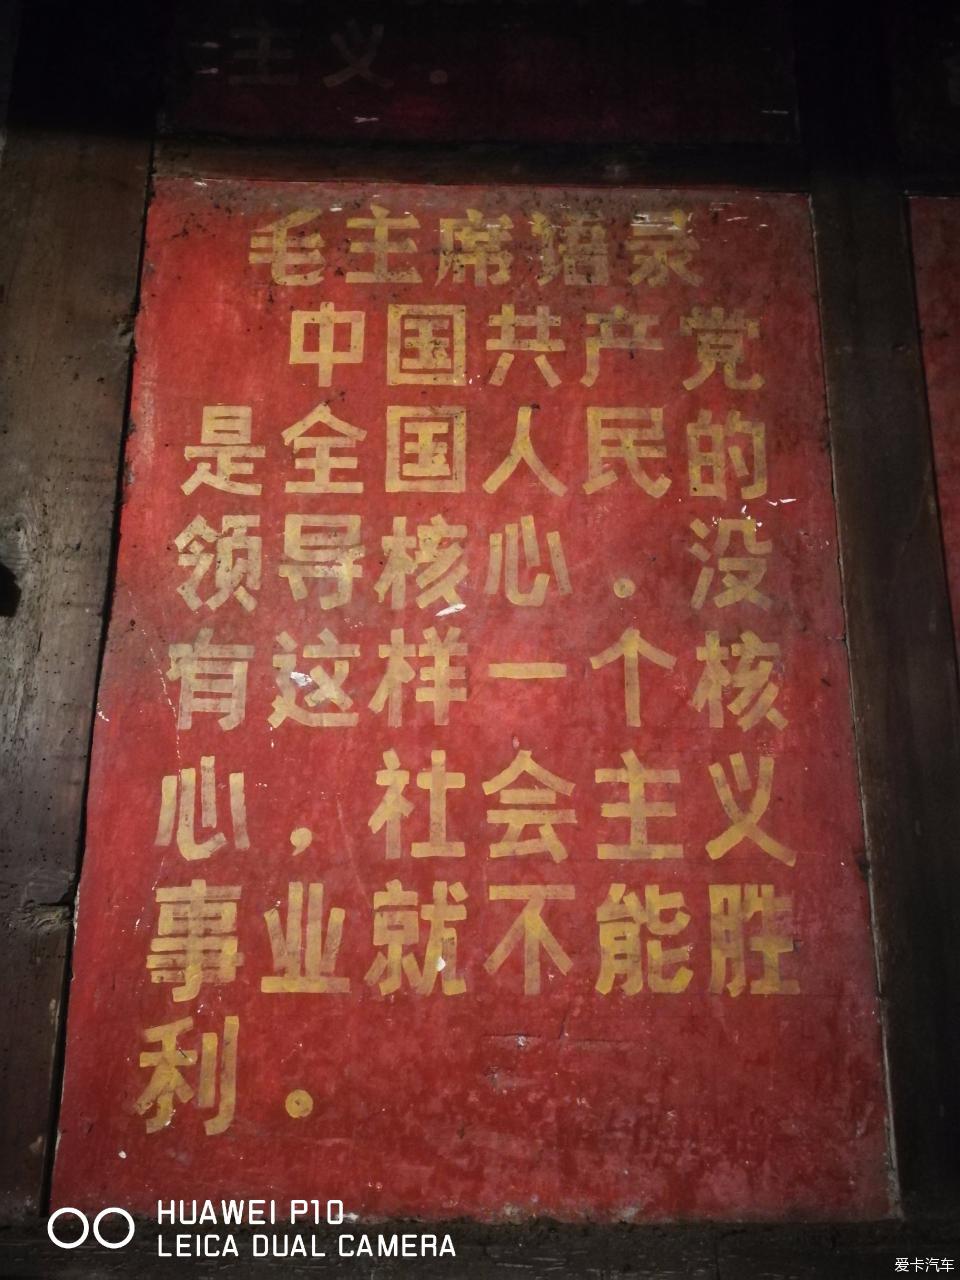 主义.
毛主席语录
中国共产党
是全国人民的
领导核心。没
有这样一个核
心，社会主义
事业就不能胜
利。
HUAWEI P10
LEICA DUAL CAMERA
爱卡汽车